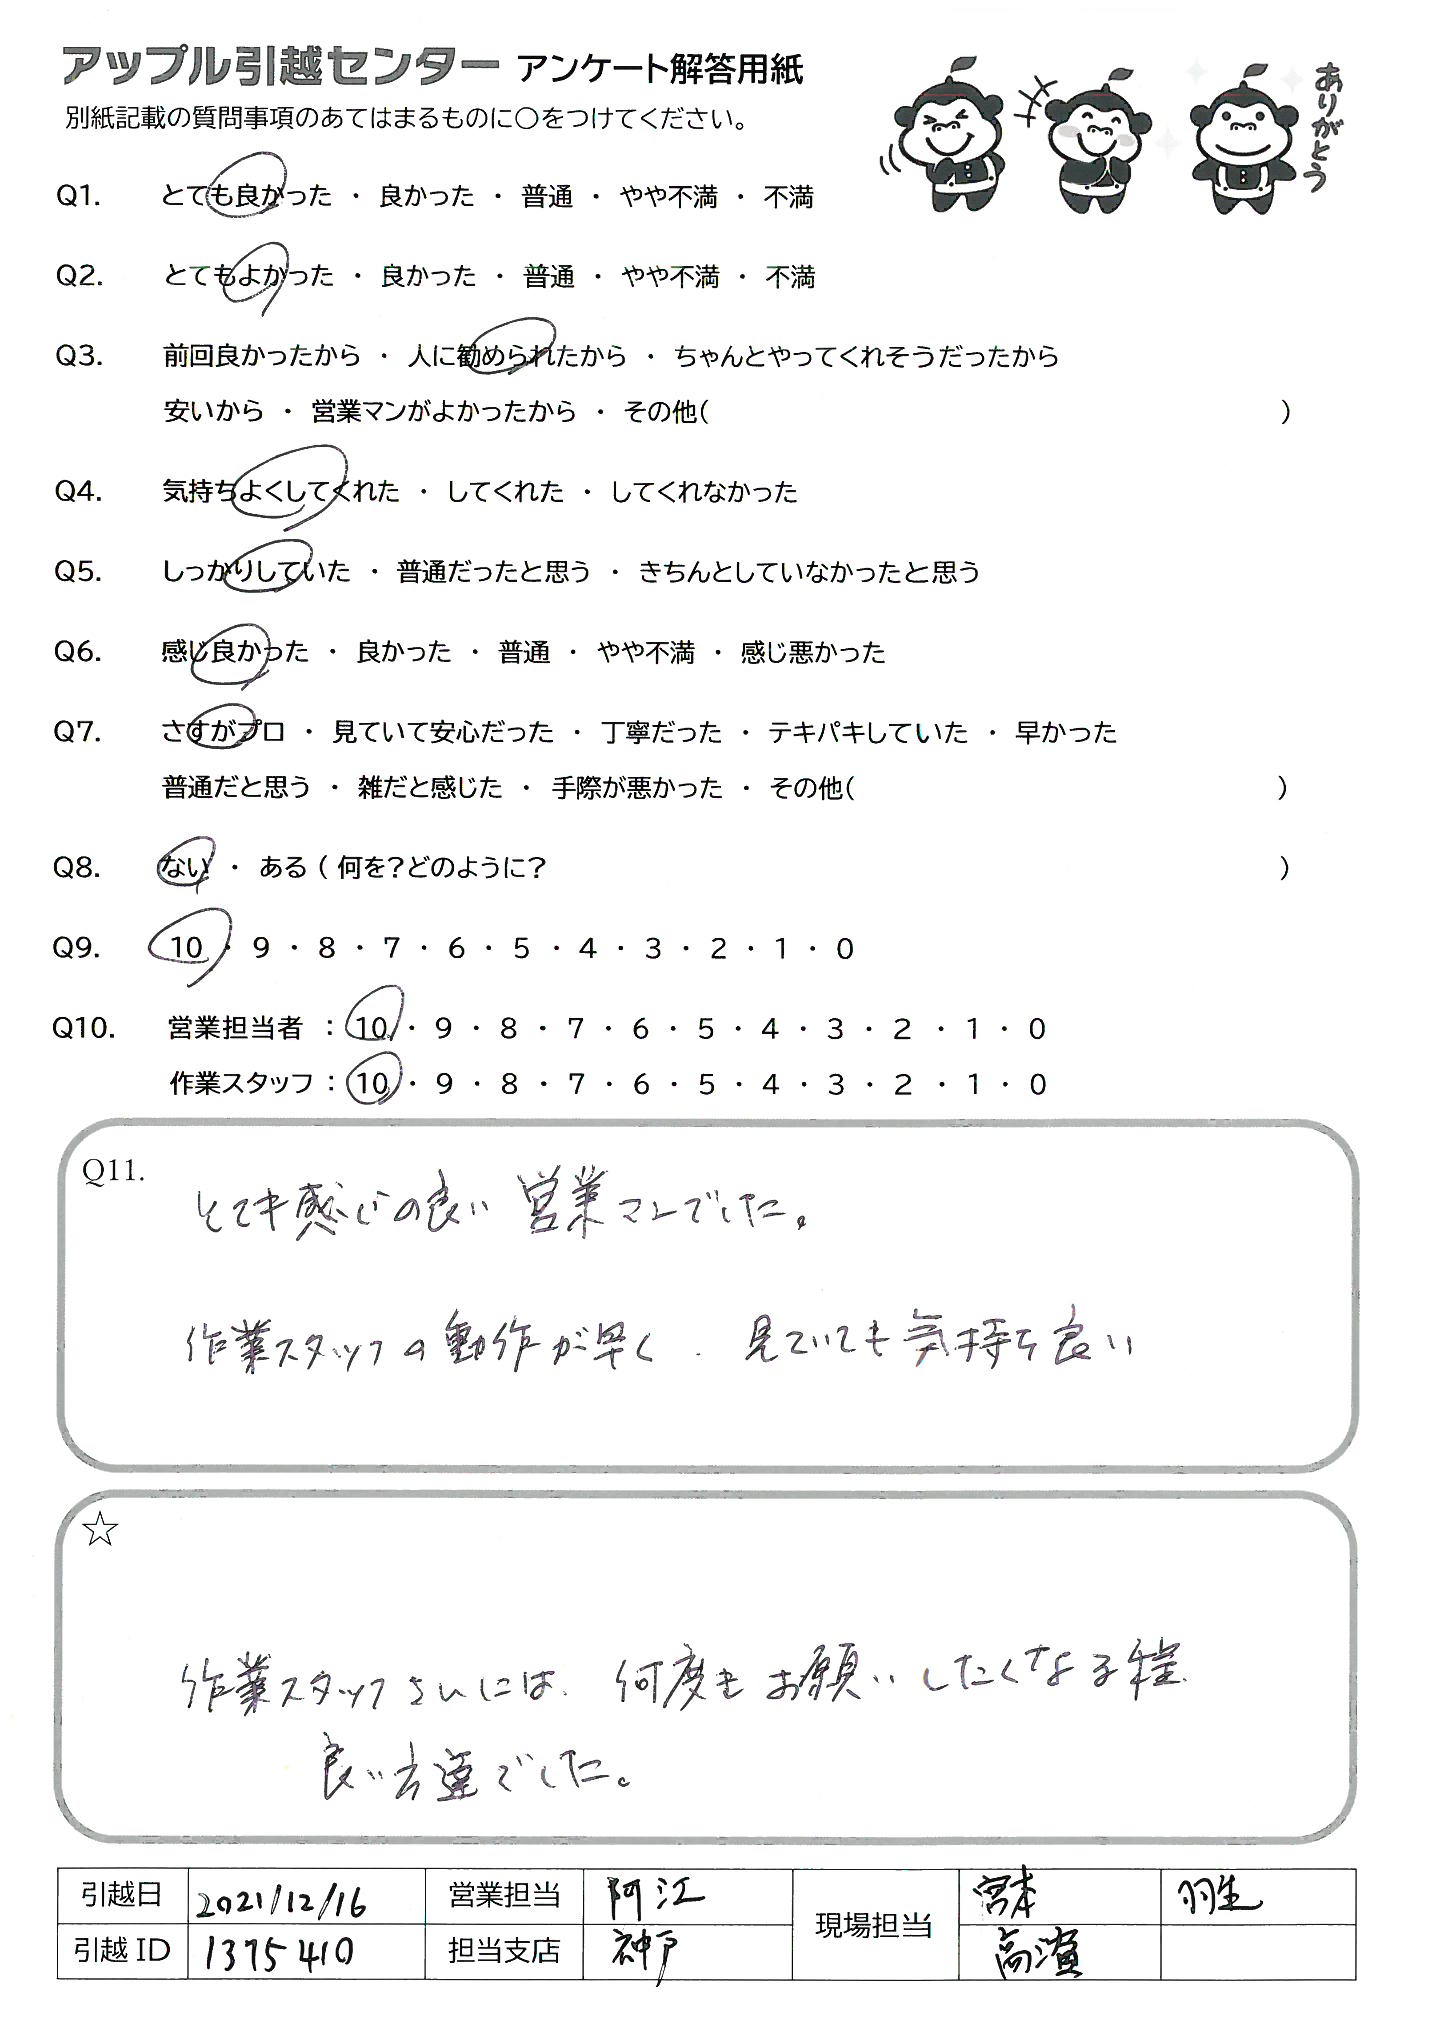 アップル引越センター アンケート解答用紙
ありがとう
別紙記載の質問事項のあてはまるものに○をつけてください。
Q1. とても良かった ・ 良かった ・ 普通 ・ やや不満 ・ 不満
Q2. とてもよかった ・ 良かった ・ 普通 ・ やや不満 ・ 不満
Q3. 前回良かったから ・ 人に勧められたから ・ ちゃんとやってくれそうだったから
安いから ・ 営業マンがよかったから ・ その他( )
Q4. 気持ちよくしてくれた ・ してくれた ・ してくれなかった
Q5. しっかりしていた ・ 普通だったと思う ・ きちんとしていなかったと思う
Q6. 感じ良かった ・ 良かった ・ 普通 ・ やや不満 ・ 感じ悪かった
Q7. さすがプロ ・ 見ていて安心だった ・ 丁寧だった ・ テキパキしていた ・ 早かった
普通だと思う ・ 雑だと感じた ・ 手際が悪かった ・ その他( )
Q8. ない ・ ある ( 何を?どのように? )
Q9. 10 ・ 9 ・ 8 ・ 7 ・ 6 ・ 5 ・ 4 ・ 3 ・ 2 ・ 1 ・ 0
Q10. 営業担当者 : 10 ・ 9 ・ 8 ・ 7 ・ 6 ・ 5 ・ 4 ・ 3 ・ 2 ・ 1 ・ 0
作業スタッフ : 10 ・ 9 ・ 8 ・ 7 ・ 6 ・ 5 ・ 4 ・ 3 ・ 2 ・ 1 ・ 0
Q11.
とても感じの良い営業マンでした。
作業スタッフの動作が早く、見ていても気持ち良い
☆
作業スタッフさんには、何度もお願いしたくなる程、
良い方達でした。
引越日 2021/12/16 営業担当 阿江 現場担当 宮本 羽生
引越ID 1375410 担当支店 神戸 高濱